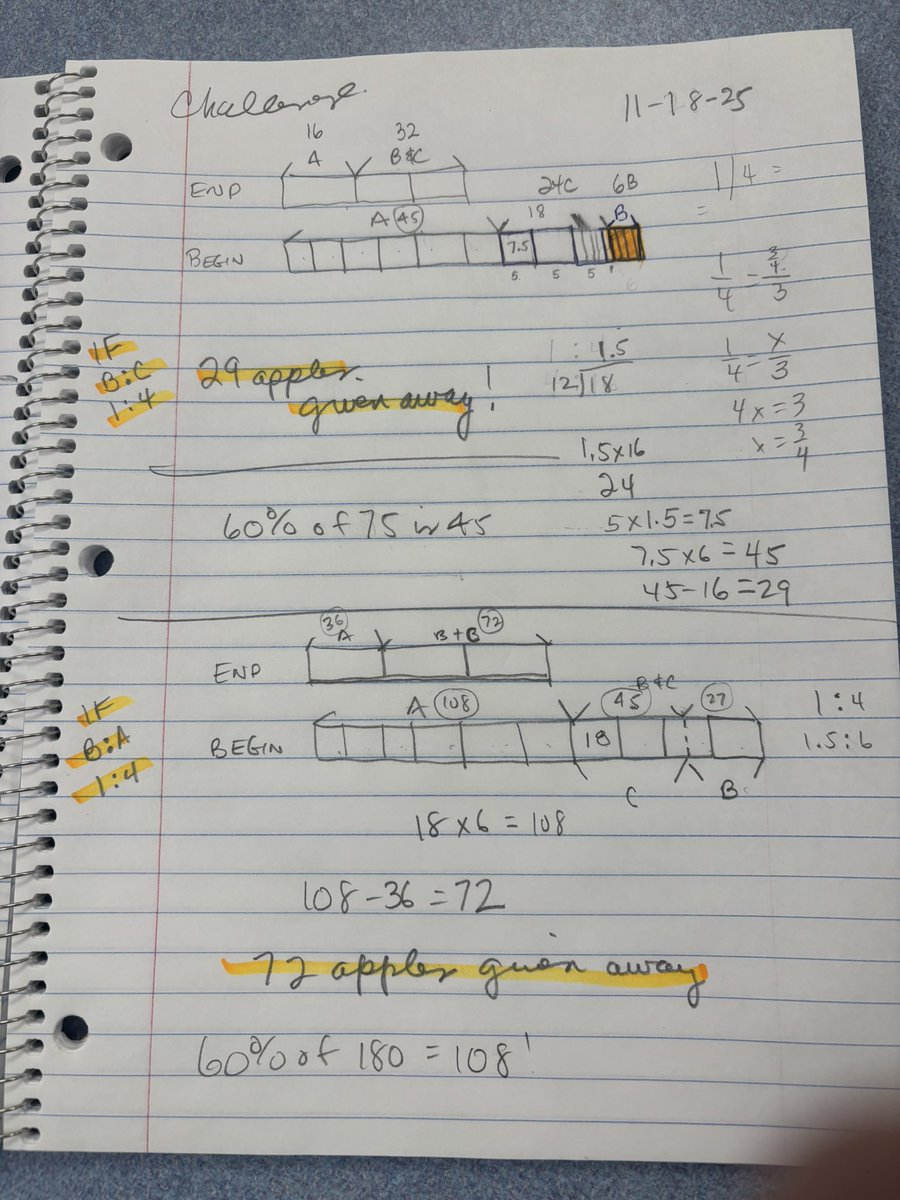 Challenge 11-18-25
16 32
A B&C
END
24C 6B
A 45 18 B
BEGIN 7.5
5 5 5 6
1/4 =
=
1/4 = 3/4 / 3
1/4 = x/3
4x = 3
x = 3/4
IF
B:C
1:4
29 apples
given away!
1 : 1.5
12)18
1.5x16
24
60% of 75 is 45
5x1.5=7.5
7.5x6=45
45-16=29
36 72
A B+B
END
B&C
A 108 45 27
BEGIN 18
C B
1:4
1.5:6
IF
B:A
1:4
18x6=108
108-36=72
72 apples given away
60% of 180 = 108!